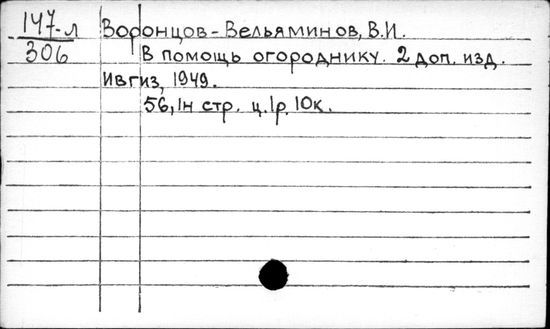 147-л Воронцов-Вельяминов, В.И.
306 В помощь огороднику. 2 доп. изд.
Ивгиз, 1949.
56, 1н стр. ц. 1р. 10к.